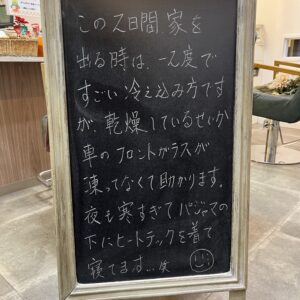 この2日間、家を
出る時は、-2度で
すごい冷え込み方です
が、乾燥しているせいか
車のフロントガラスが
凍ってなくて助かります。
夜も寒すぎてパジャマの
下にヒートテックを着て
寝てます...笑